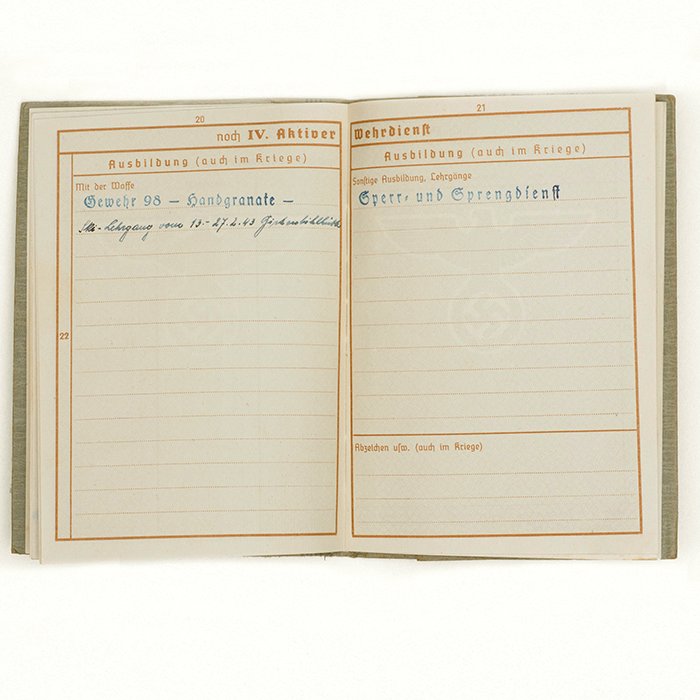 20
noch IV. Aktiver
Ausbildung (auch im Kriege)
Mit der Waffe
Gewehr 98 – Handgranate –
Ski-Lehrgang vom 13.-27.2.43
22
21
Wehrdienst
Ausbildung (auch im Kriege)
Sonstige Ausbildung, Lehrgänge
Sperr- und Sprengdienst
Abzeichen usw. (auch im Kriege)